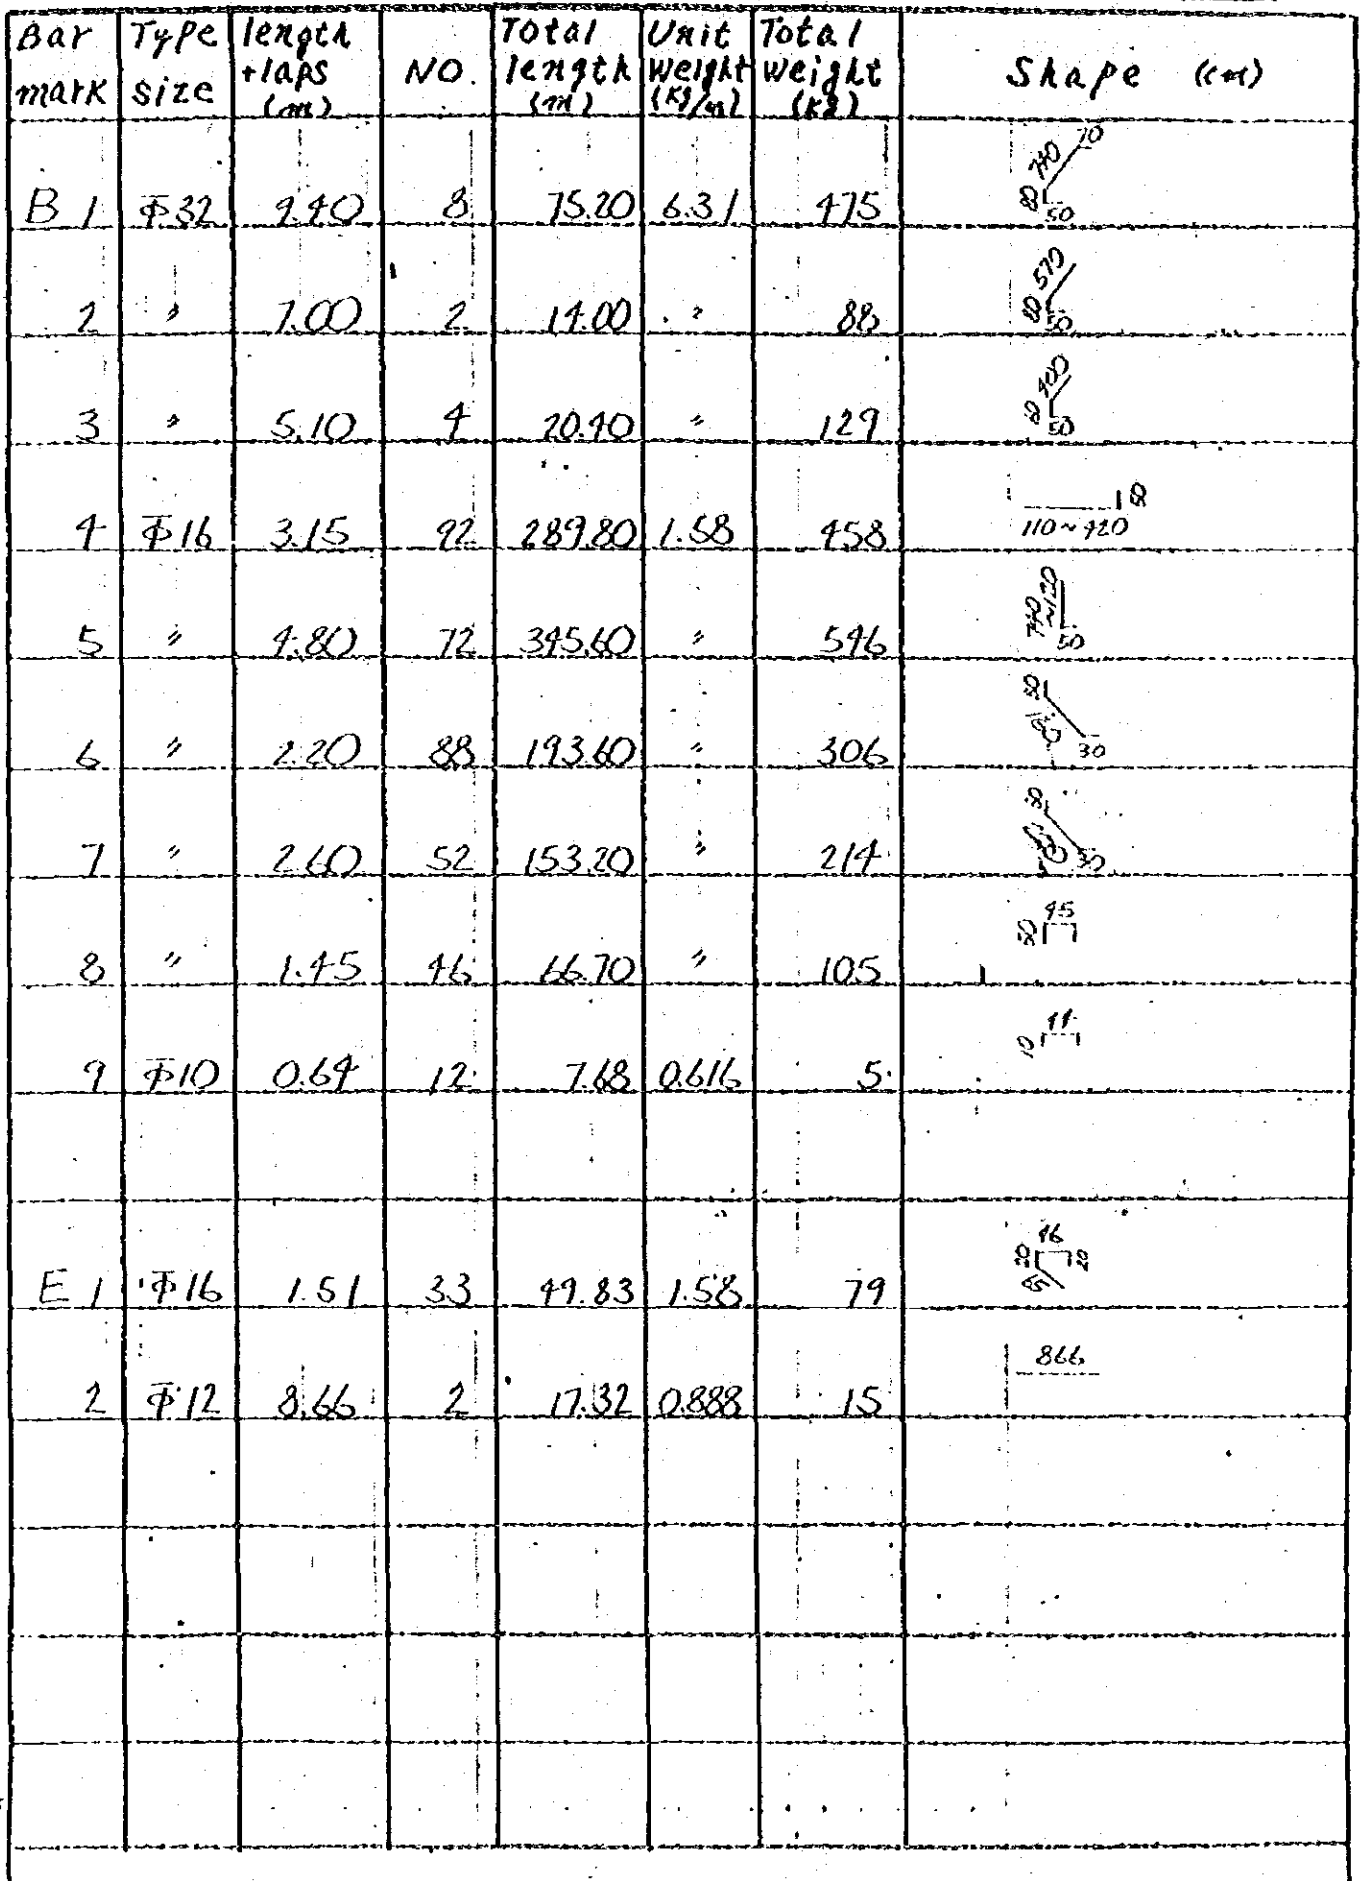 Bar mark Type size length +laps (m) NO. Total length (m) Unit weight (kg/m) Total weight (kg) Shape (cm)
B 1 Φ32 9.40 8 75.20 6.31 475 80 740 70 50
2 〃 7.00 2 14.00 〃 88 80 570 50
3 〃 5.10 4 20.40 〃 129 400 50
4 Φ16 3.15 92 289.80 1.58 458 110~420
5 〃 4.80 72 345.60 〃 546 740 ~120 50
6 〃 2.20 88 193.60 〃 306 30
7 〃 2.60 52 153.20 〃 214 30
8 〃 1.45 46 66.70 〃 105 50 45
9 Φ10 0.64 12 7.68 0.616 5 10 44
E 1 Φ16 1.51 33 49.83 1.58 79 20 46 20
2 Φ12 8.66 2 17.32 0.888 15 866